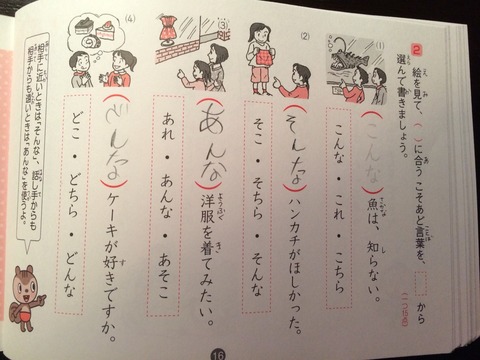 2 絵を見て、( )に合う こそあど言葉を、 から
選んで書きましょう。
(一つ15点)
(1)
(こんな)魚は、知らない。
こんな・これ・こちら
(2)
(そんな)ハンカチがほしかった。
そこ・そちら・そんな
(3)
(あんな)洋服を着てみたい。
あれ・あんな・あそこ
(4)
(どんな)ケーキが好きですか。
どこ・どちら・どんな
相手に近いときは「そんな」、話し手からも
相手からも遠いときは「あんな」を使うよ。
16